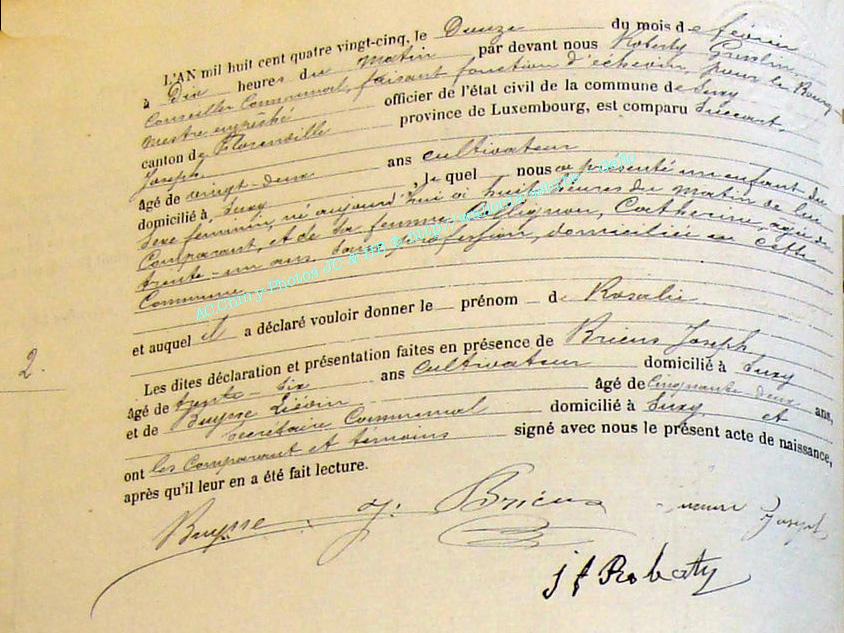 L'AN mil huit cent quatre vingt-cinq, le Douze du mois de février
à Dix heures du matin par devant nous Roberty
Conseiller Communal, faisant fonction d'échevin, pour le Bourg-
mestre empêché officier de l'état civil de la commune de Suxy
canton de Florenville province de Luxembourg, est comparu
Joseph
âgé de vingt-deux ans cultivateur
domicilié à, Suxy, le quel nous a présenté un enfant du
sexe féminin, né aujourd'hui à huit heures du matin de lui
Comparant, et de sa femme Collignon, Catherine, âgée de
trente-un ans, sans profession, domiciliée en cette
Commune
et auquel il a déclaré vouloir donner le prénom de Rosalie
2.
Les dites déclaration et présentation faites en présence de Brieux Joseph
âgé de trente-six ans cultivateur domicilié à Suxy
et de Buysse âgé de cinquante deux ans,
Secrétaire Communal domicilié à Suxy et
ont les Comparant et témoins signé avec nous le présent acte de naissance,
après qu'il leur en a été fait lecture.
Buysse J. Brieux Joseph
Roberty
AC Chiny Photos JC &